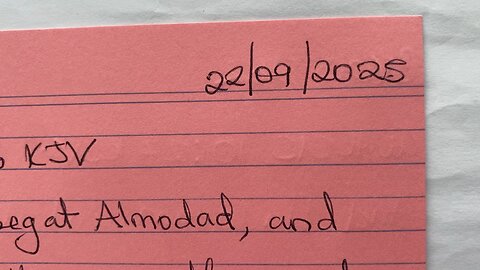 22/09/2025
KJV
begat Almodad, and